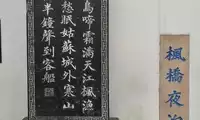 楓橋夜泊
烏啼霜滿天江楓漁
愁眠姑蘇城外寒山
半鐘聲到客船